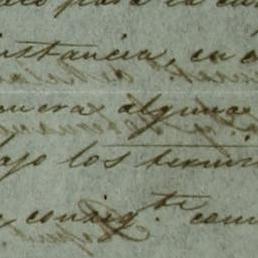 para la
instancia, en
manera alguna
bajo los termin
consigte com